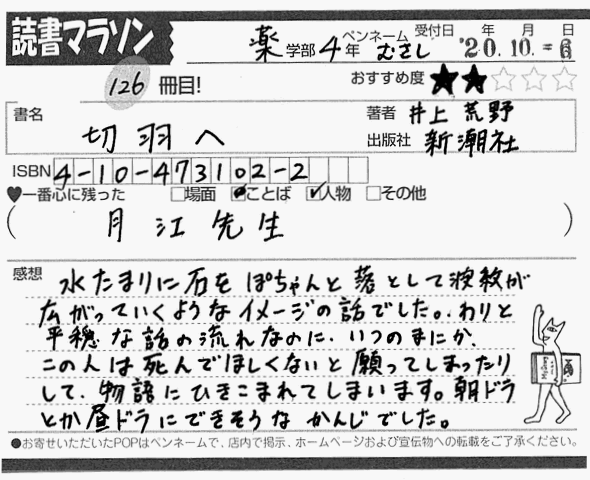 読書マラソン
薬学部4年 ペンネーム むさし 受付日 '20.10.-6 年 月 日
126冊目! おすすめ度 ★★☆☆☆
書名 切羽へ 著者 井上荒野
出版社 新潮社
ISBN 4-10-473102-2
♥一番心に残った □場面 ☑ことば ☑人物 □その他
(月江先生)
感想 水たまりに石をぽちゃんと落として波紋が
広がっていくようなイメージの話でした。わりと
平穏な話の流れなのに、いつのまにか、
この人は死んでほしくないと願ってしまったり
して、物語にひきこまれてしまいます。朝ドラ
とか昼ドラにできそうなかんじでした。
●お寄せいただいたPOPはペンネームで、店内で掲示、ホームページおよび宣伝物への転載をご了承ください。